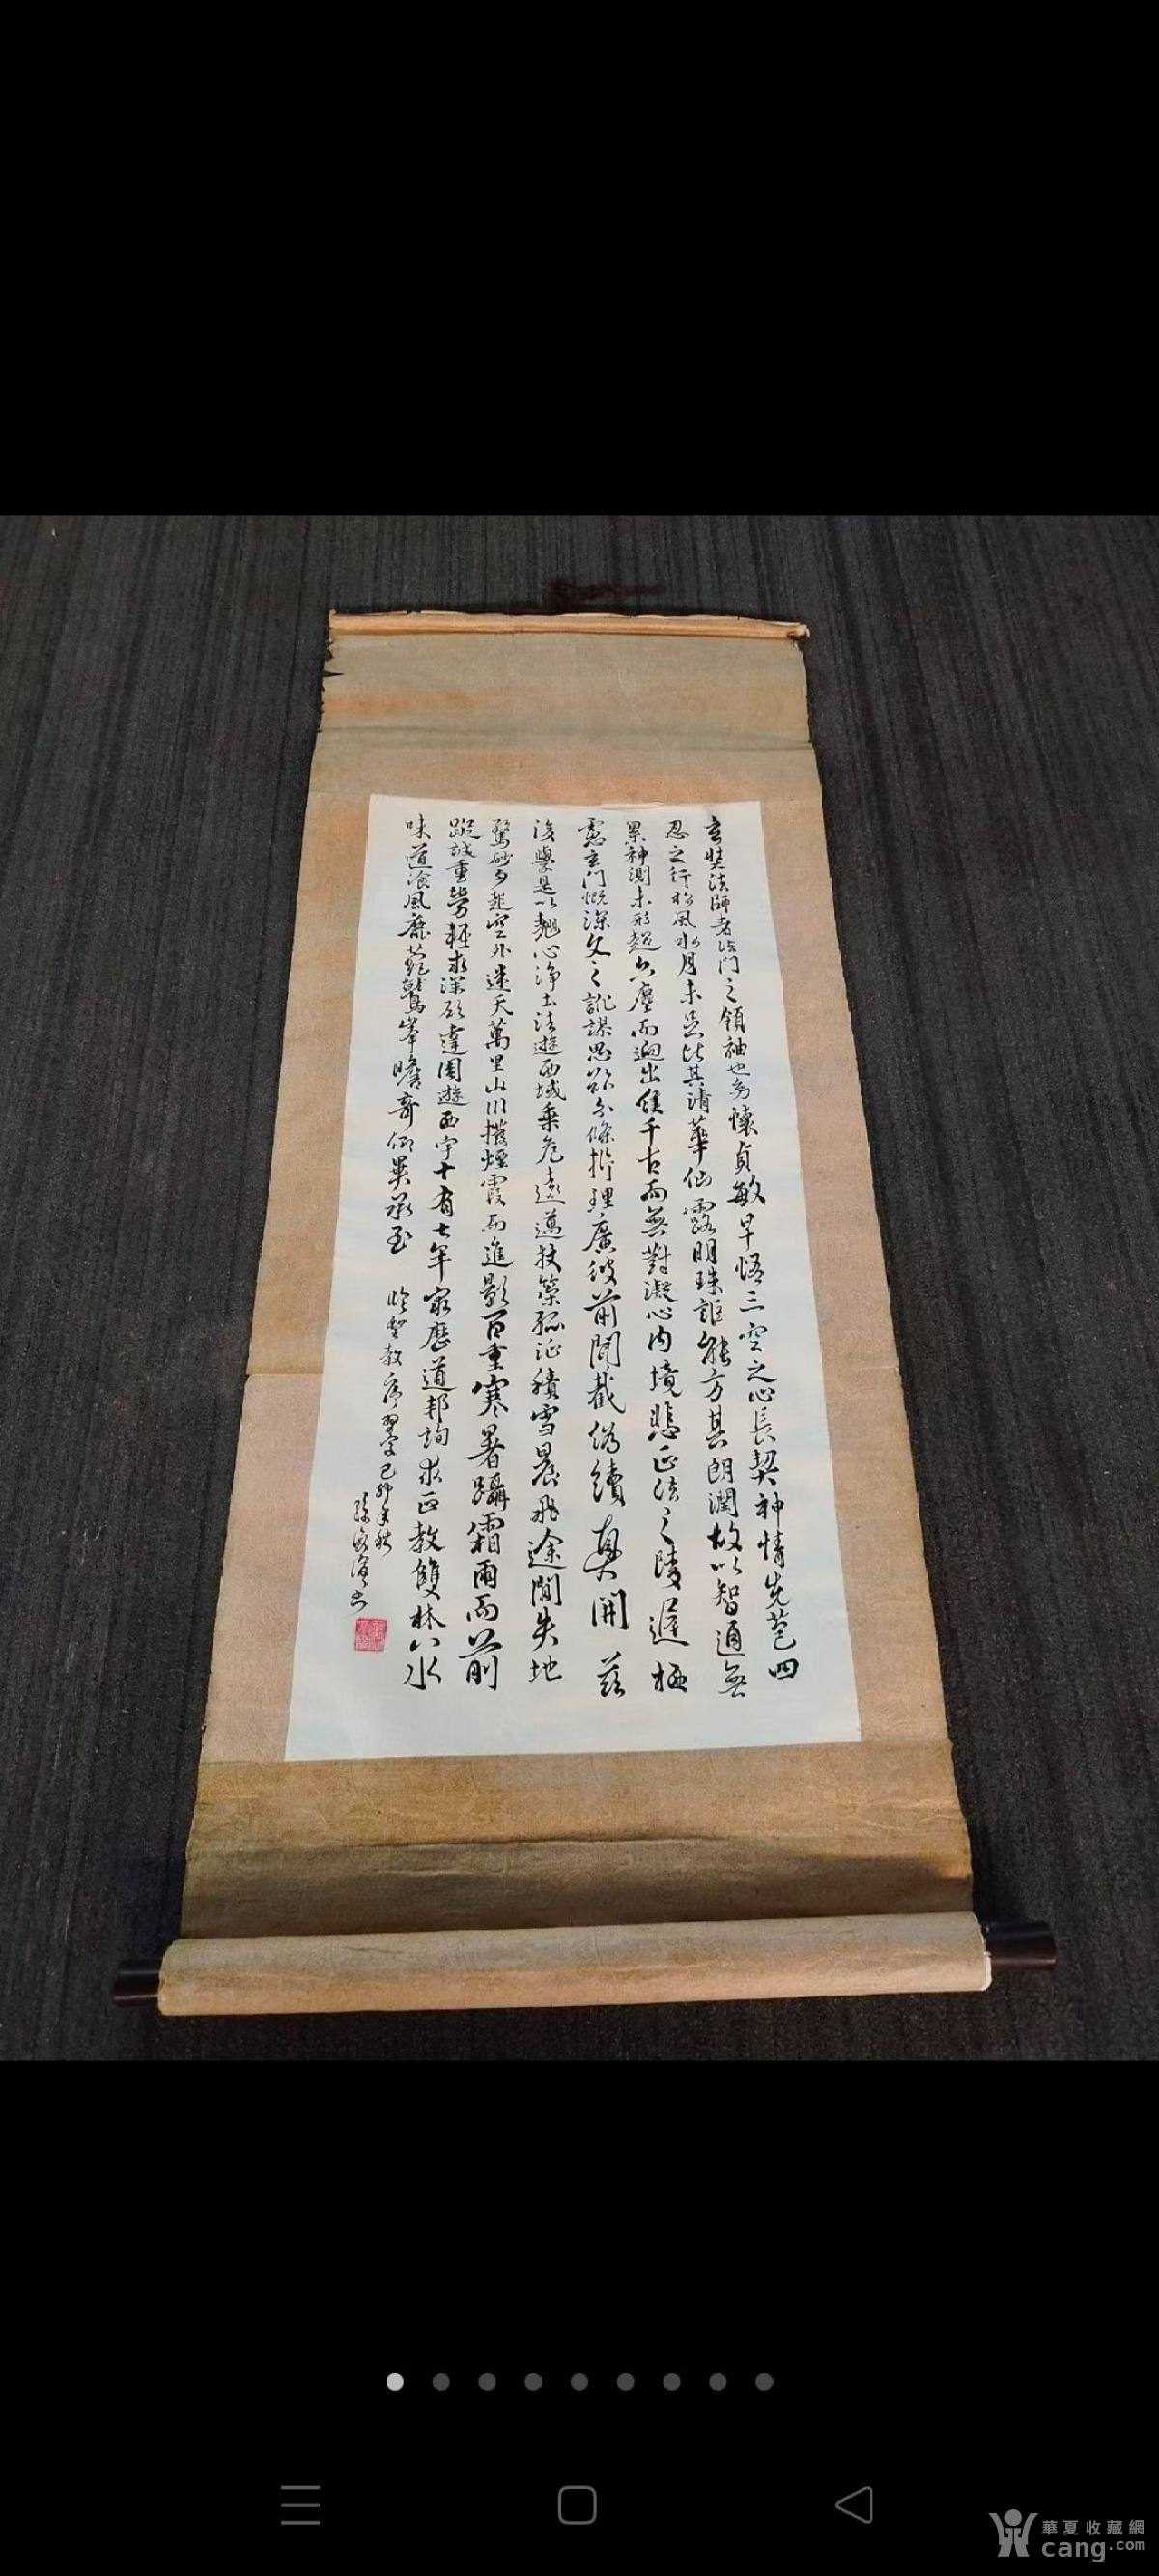 玄奘法師者法門之領袖也幼懷貞敏早悟三空之心長契神情先苞四
忍之行松風水月未足比其清華仙露明珠詎能方其朗潤故以智通無
累神測未形超六塵而迥出隻千古而無對凝心內境悲正法之陵遲栖
慮玄門慨深文之訛謬思欲分條析理廣彼前聞截偽續真開茲
後學是以翹心淨土法遊西域乘危遠邁杖策孤征積雪晨飛途閒失地
驚砂夕起空外迷天萬里山川撥煙霞而進影百重寒暑躡霜雨而前
蹤誠重勞輕求深願達周遊西宇十有七年窮歷道邦詢求正教雙林八水
味道飡風鹿菀鷲峯瞻奇仰異承至
臨聖教序習字己卯年秋
書
華夏收藏網
cang.com